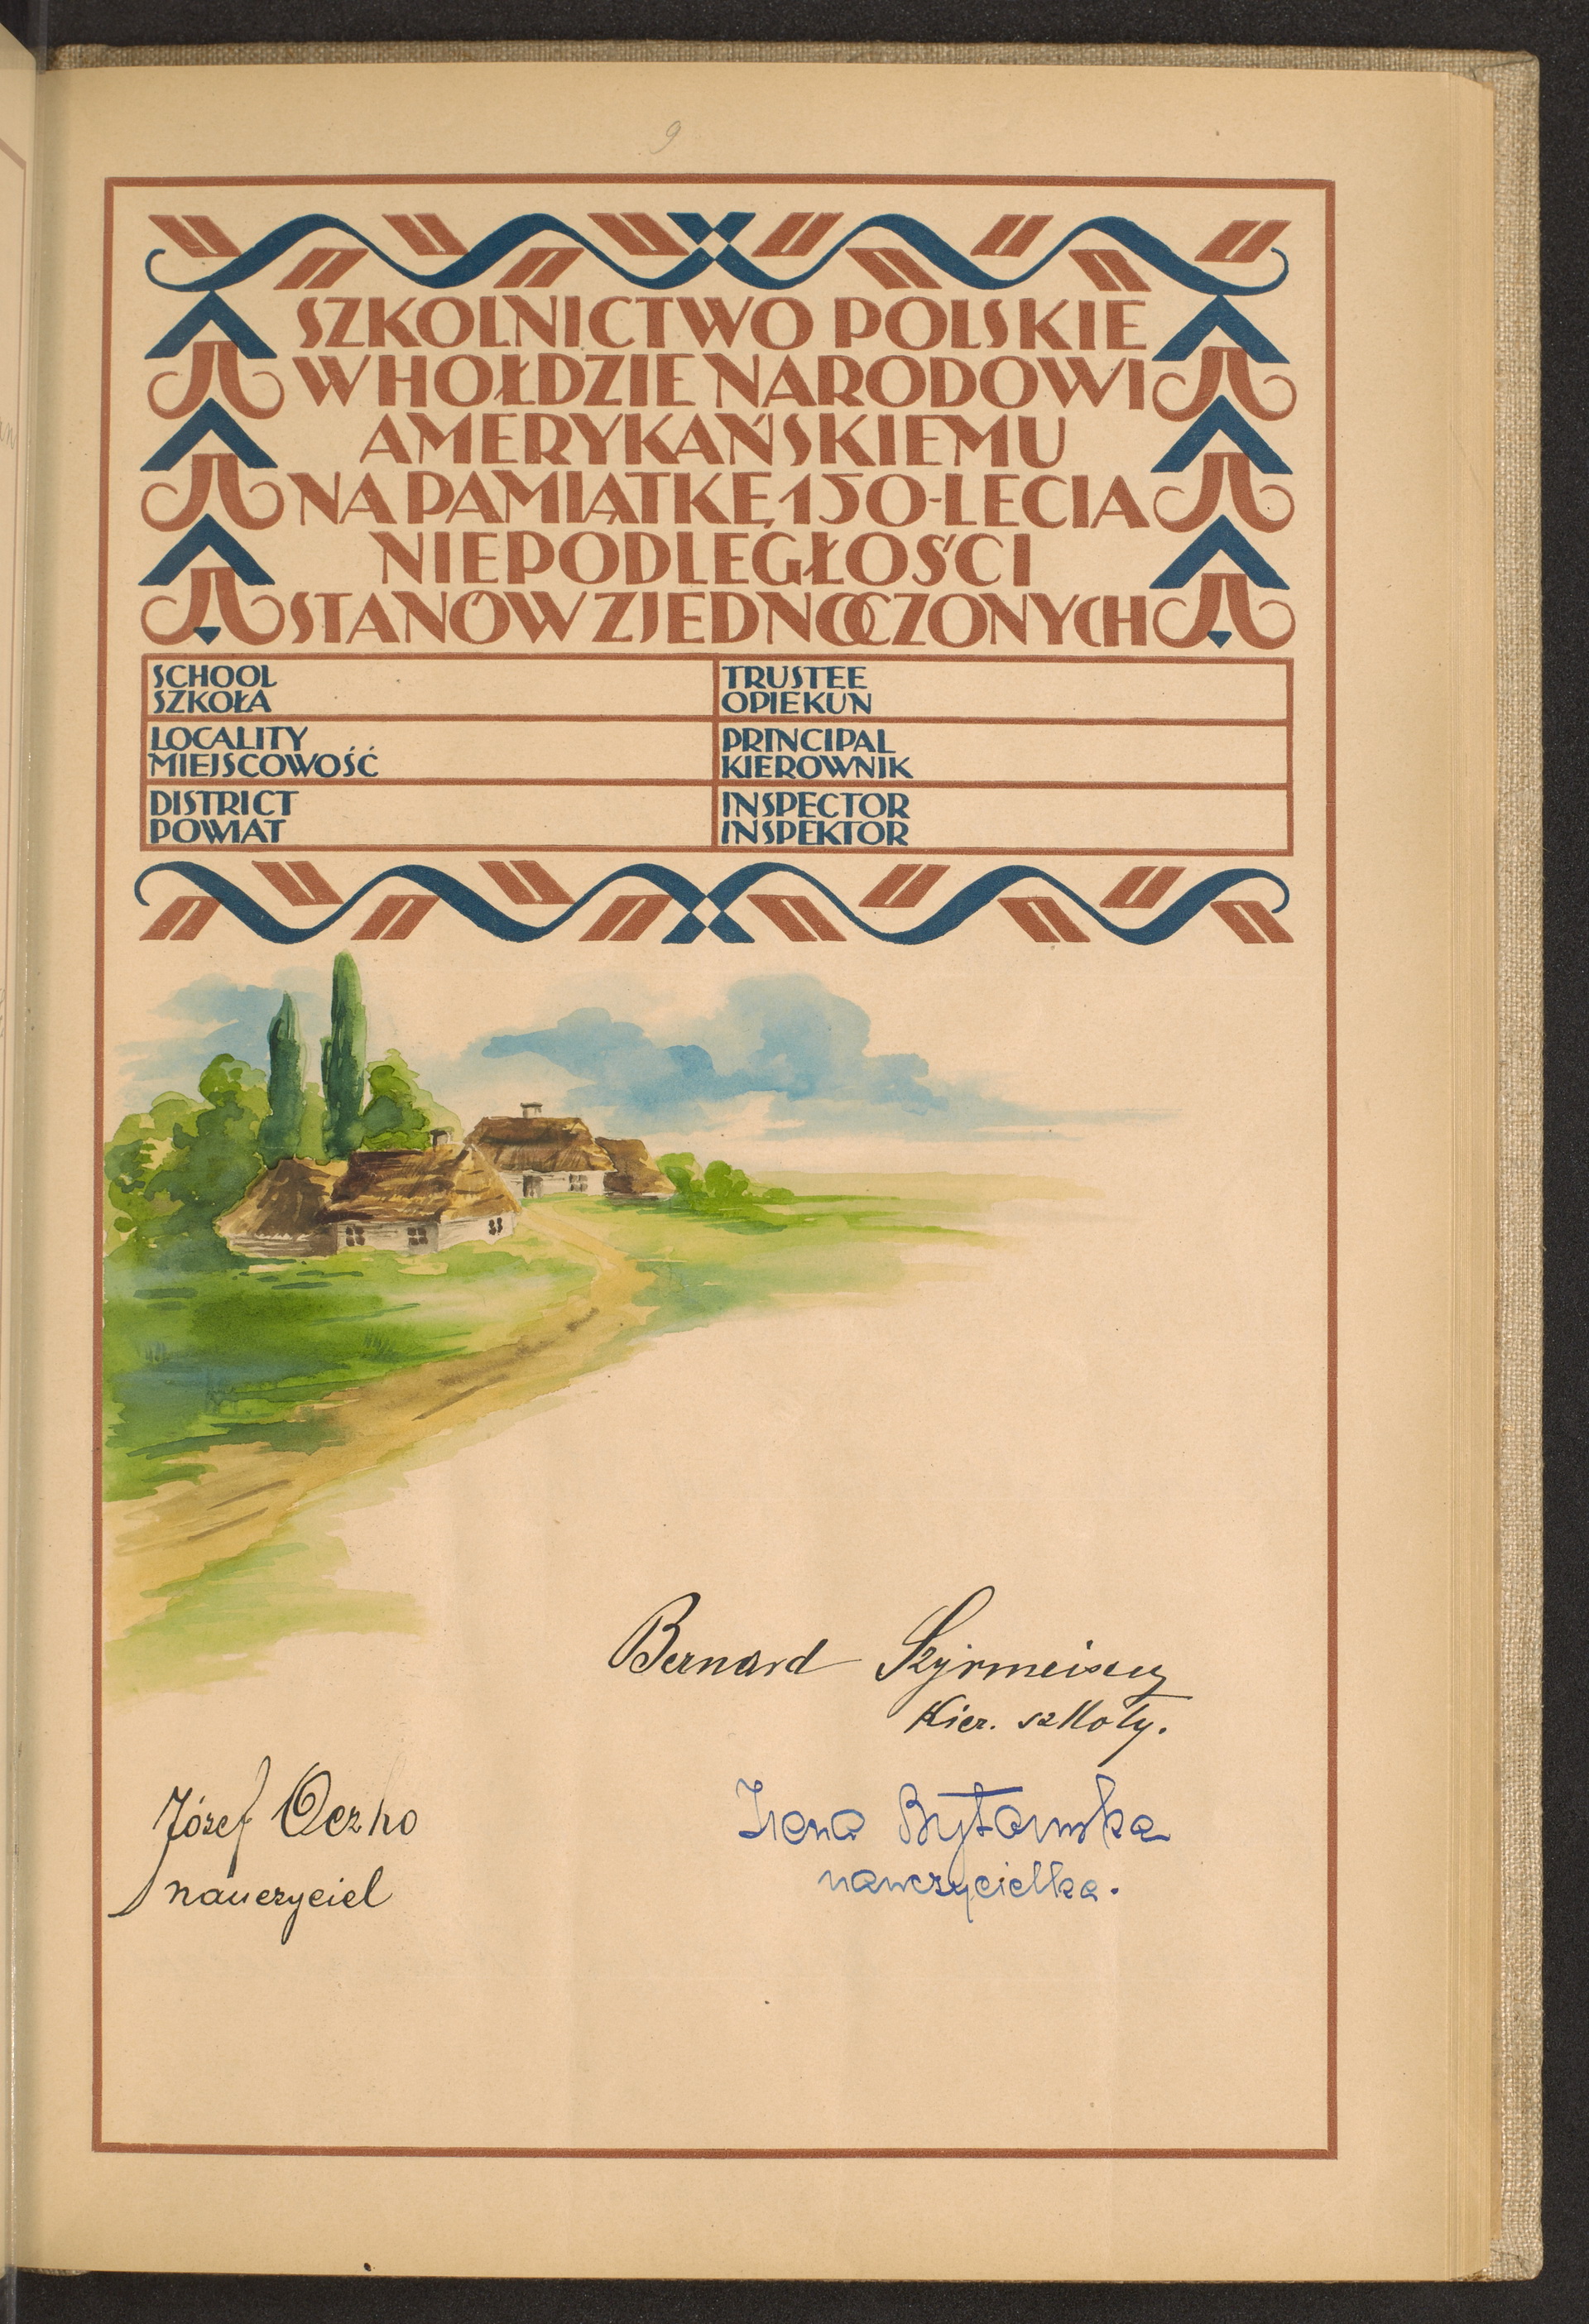 9
SZKOLNICTWO POLSKIE
W HOŁDZIE NARODOWI
AMERYKAŃSKIEMU
NA PAMIĄTKĘ 150-LECIA
NIEPODLEGŁOŚCI
STANÓW ZJEDNOCZONYCH
SCHOOL
SZKOŁA
TRUSTEE
OPIEKUN
LOCALITY
MIEJSCOWOŚĆ
PRINCIPAL
KIEROWNIK
DISTRICT
POWIAT
INSPECTOR
INSPEKTOR
Bernard
Kier. szkoły.
Józef Oczko
nauczyciel
Irena
nauczycielka.